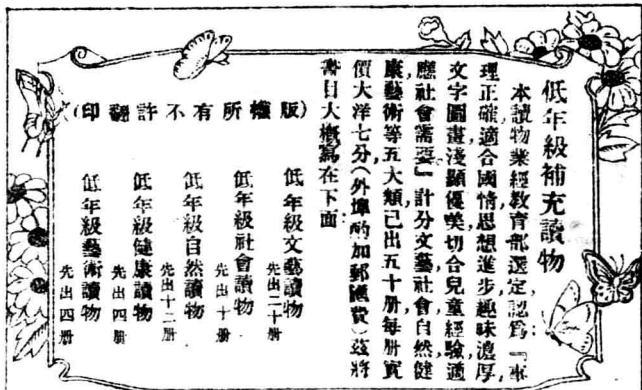 低年級補充讀物
本讀物業經教育部選定認爲『事
理正確,適合國情,思想進步,趣味濃厚,
文字圖畫淺顯優美,切合兒童經驗,適
應社會需要』計分文藝社會自然健
康藝術等五大類,已出五十册,每册實
價大洋七分(外埠酌加郵匯費)茲將
書目大概寫在下面:
低年級文藝讀物 先出二十册
低年級社會讀物 先出十册
低年級自然讀物 先出十二册
低年級健康讀物 先出四册
低年級藝術讀物 先出四册
(版權所有不許翻印)